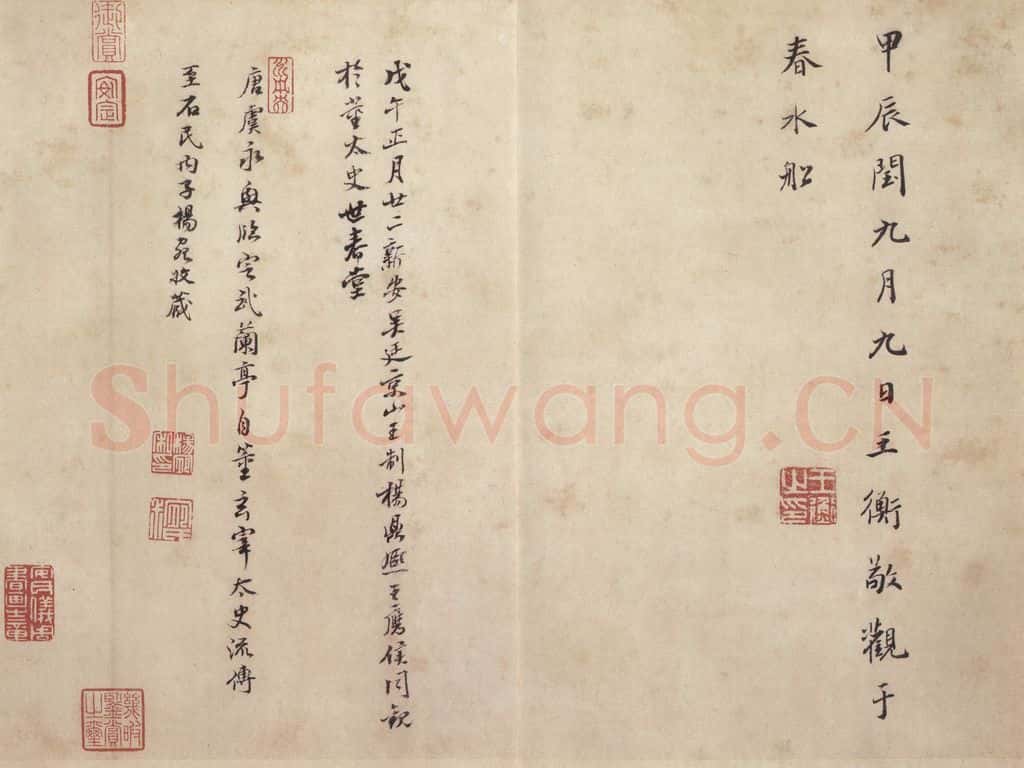 甲辰閏九月九日王衡敬觀于
春水船
戊午正月廿二新安吴廷京山王制楊鼎熙王應侯同觀
於董太史世春堂
唐虞永興臨定武蘭亭自董玄宰太史流傳
至石民内子楊宛收藏
王衡之印
御賞
安定
Shufawang.CN